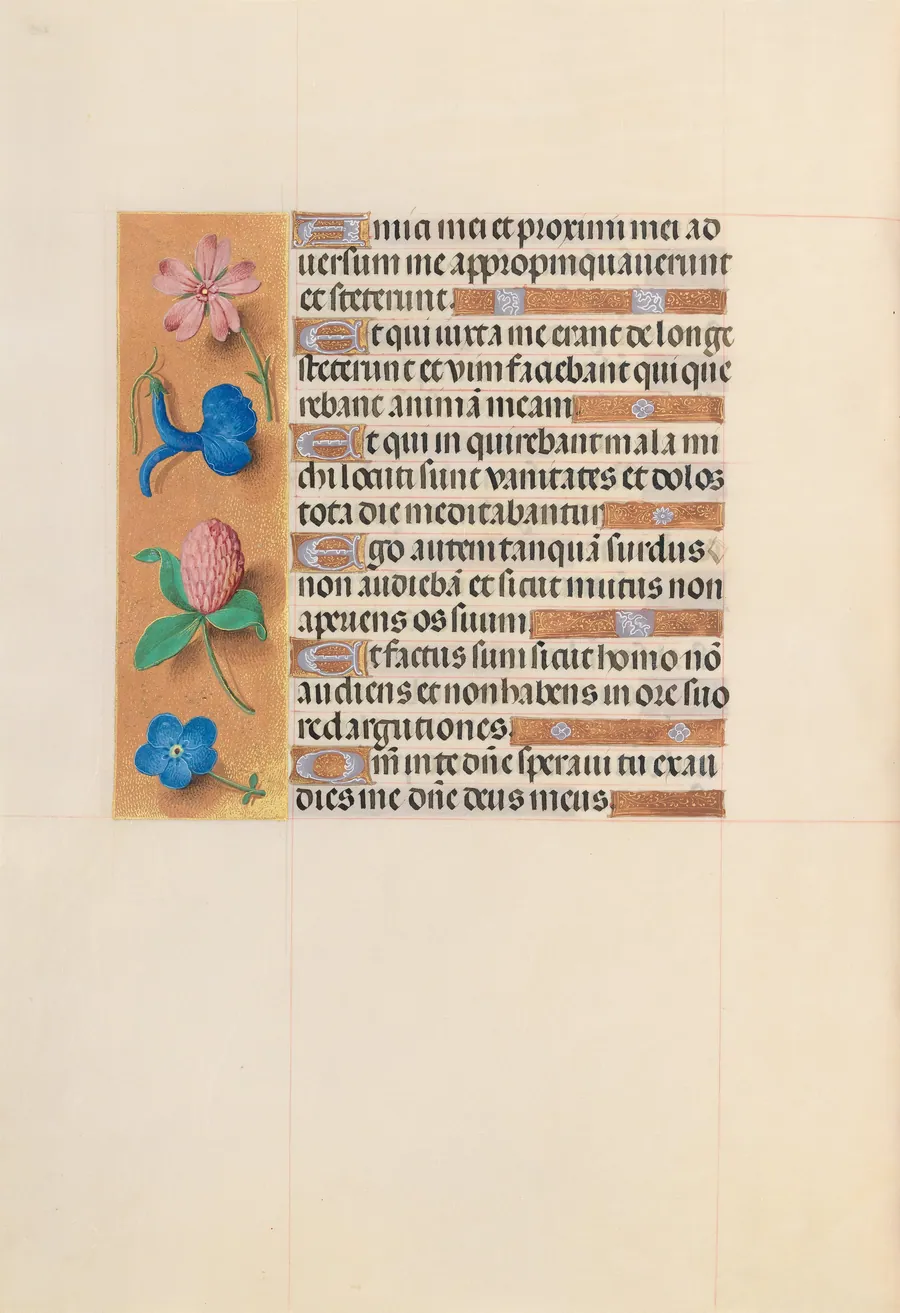 Amici mei et proximi mei ad
uersum me appropinquauerunt
et steterunt.
Et qui iuxta me erant de longe
steterunt et vim faciebant qui que
rebant animā meam
Et qui in quirebant mala mi
chi locuti sunt vanitates et dolos
tota die meditabantur
Ego autem tanquā surdus
non audiebā et sicut mutus non
aperiens os suum.
Et factus sum sicut homo nō
audiens et non habens in ore suo
redargutiones.
Qm̄ in te dn̄e speraui tu exau
dies me dn̄e deus meus.